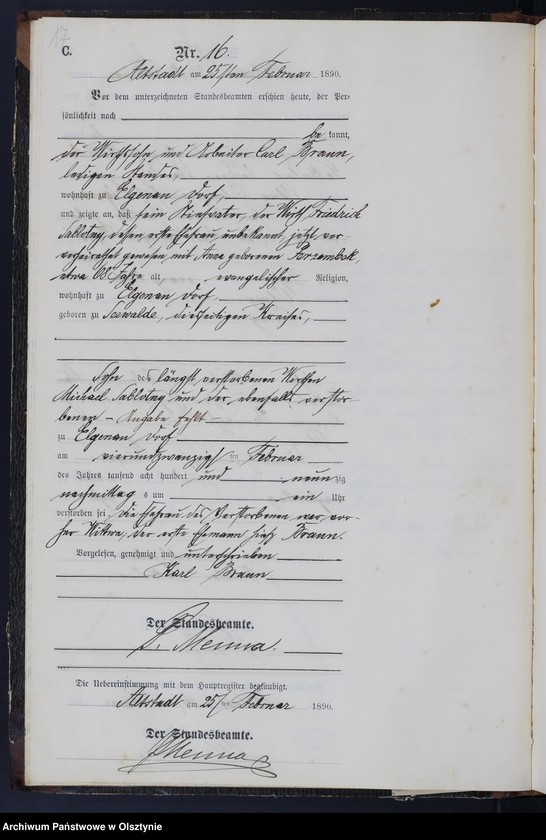 17
C.
Nr. 16.
Altstadt am 25ten Februar 1890.
Vor dem unterzeichneten Standesbeamten erschien heute, der Per-
sönlichkeit nach
be kannt,
der Wirthssohn und Arbeiter Carl Braun,
ledigen Standes,
wohnhaft zu Elgenau Dorf,
und zeigte an, daß sein Stiefvater, der Wirth Friedrich
Sablotny, dessen erste Ehefrau unbekannt, jetzt ver-
verheirathet gewesen mit Anna geborenen
etwa 68 Jahre alt, evangelischer Religion,
wohnhaft zu Elgenau Dorf,
geboren zu Seewalde, diesseitigen Kreises,
Sohn des längst verstorbenen Wirthen
Michael Sablotny und der ebenfalls verstor-
benen – Angabe fehlt –
zu Elgenau Dorf
am vierundzwanzigsten Februar
des Jahres tausend acht hundert und neun zig
nachmittag s um ein Uhr
verstorben sei. Die Ehefrau des Verstorbenen war vor-
her Wittwe, der erste Ehemann hieß Braun.
Vorgelesen, genehmigt und unterschrieben
Karl Braun
Der Standesbeamte.
Menna.
Die Uebereinstimmung mit dem Hauptregister beglaubigt.
Altstadt am 25ten Februar 1890.
Der Standesbeamte.
Menna
Archiwum Państwowe w Olsztynie